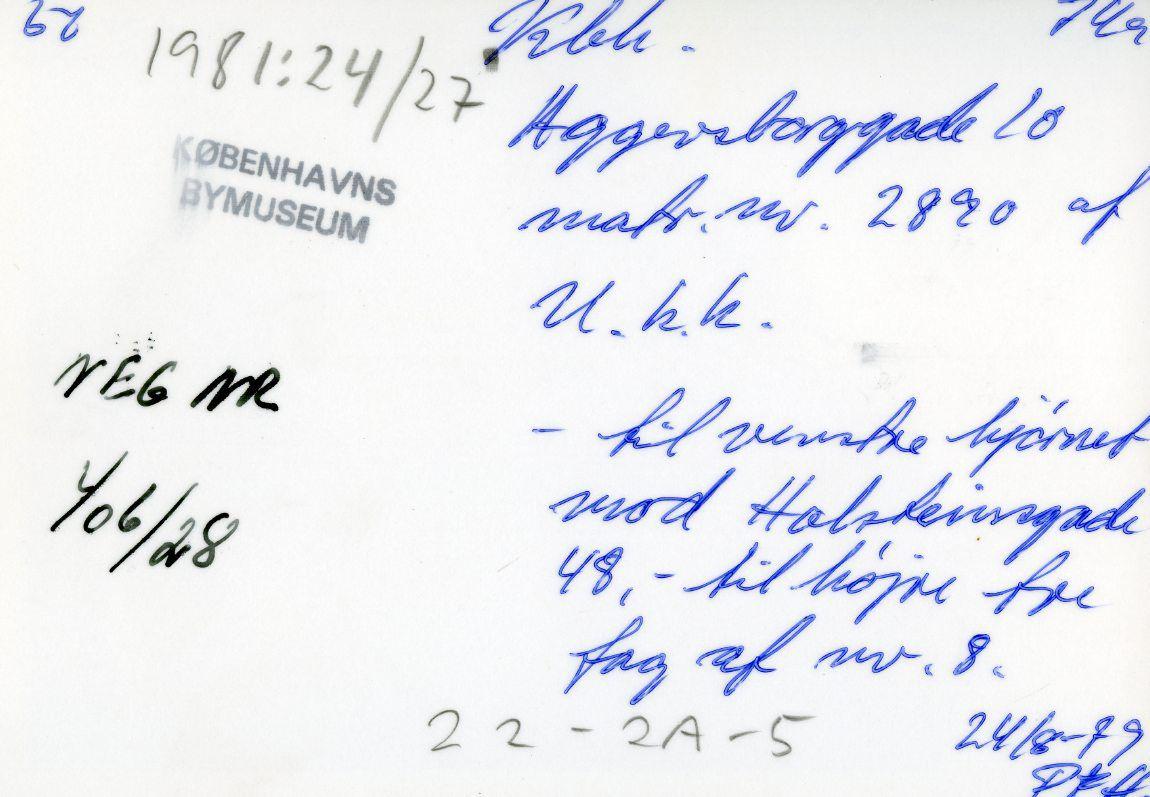 Kbh.
1981:24/27
Aggersborggade 10
KØBENHAVNS
BYMUSEUM
matr. nr. 2890 af
U.k.k.
NEG NR
4/06/28
- til venstre hjørnet
mod Holsteinsgade
48,- til højre tre
fag af nr. 8.
22-2A-5
24/8-79